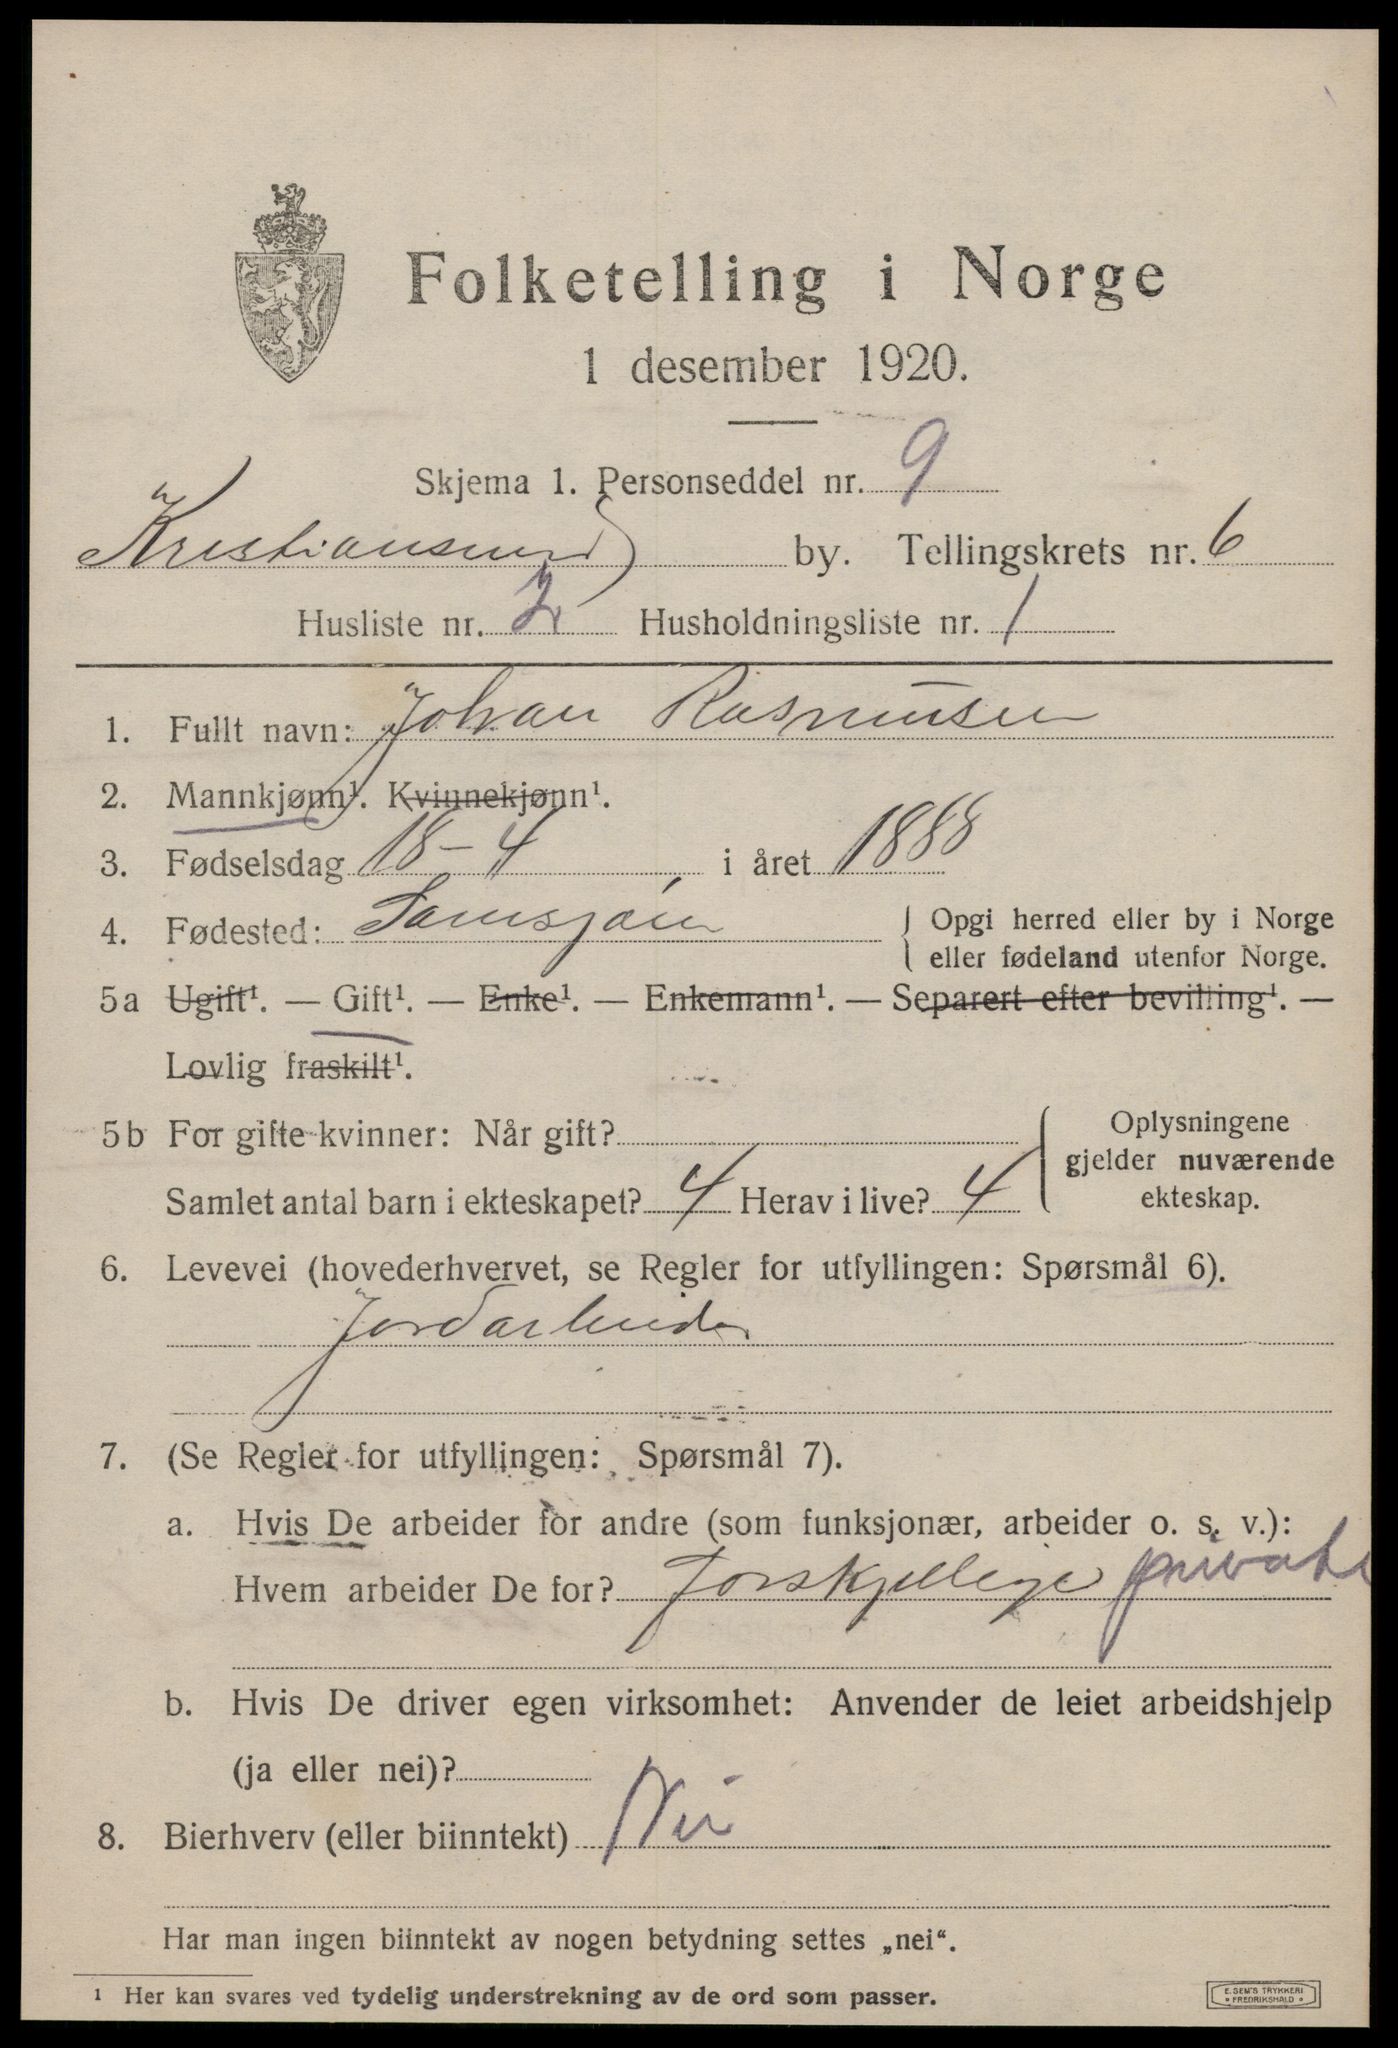 Folketelling i Norge
1 desember 1920.
Skjema 1. Personseddel nr. 9
Kristiansund by. Tellingskrets nr. 6
Husliste nr. 2 Husholdningsliste nr. 1
1. Fullt navn: Johan Rasmusen
2. Mannkjønn¹. Kvinnekjønn¹.
3. Fødselsdag 18-4 i året 1888
4. Fødested: { Opgi herred eller by i Norge
eller fødeland utenfor Norge.
5a Ugift¹. — Gift¹. — Enke¹. — Enkemann¹. — Separert efter bevilling¹. —
Lovlig fraskilt¹.
5b For gifte kvinner: Når gift? { Oplysningene
gjelder nuværende
Samlet antal barn i ekteskapet? 4 Herav i live? 4 ekteskap.
6. Levevei (hovederhvervet, se Regler for utfyllingen: Spørsmål 6).
Jordarbeider
7. (Se Regler for utfyllingen: Spørsmål 7).
a. Hvis De arbeider for andre (som funksjonær, arbeider o. s. v.):
Hvem arbeider De for? Forskjellige private
b. Hvis De driver egen virksomhet: Anvender de leiet arbeidshjelp
(ja eller nei)?
8. Bierhverv (eller biinntekt) Nei
Har man ingen biinntekt av nogen betydning settes „nei“.
¹ Her kan svares ved tydelig understrekning av de ord som passer.
E. SEM'S TRYKKERI
FREDRIKSHALD